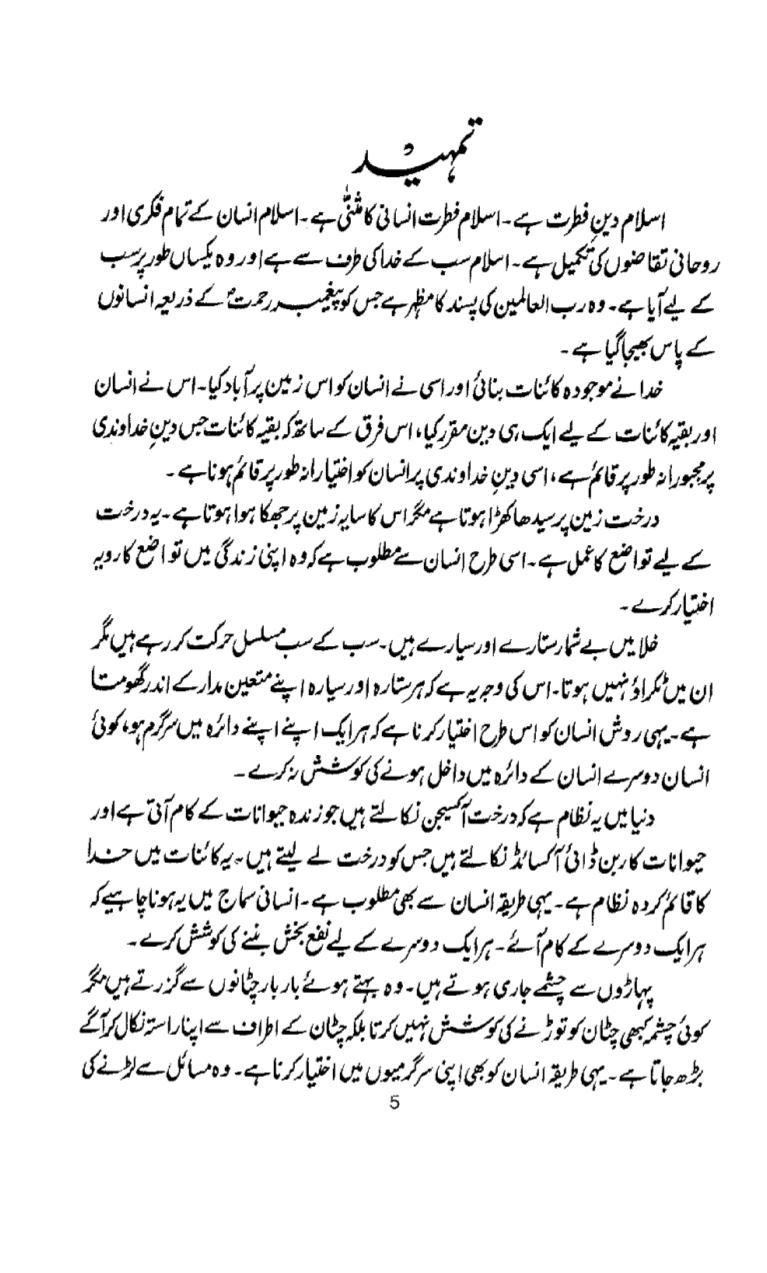 تمہید
اسلام دینِ فطرت ہے۔ اسلام فطرت انسانی کا مثنیٰ ہے۔ اسلام انسان کے تمام فکری اور
روحانی تقاضوں کی تکمیل ہے۔ اسلام سب کے خدا کی طرف سے ہے اور وہ یکساں طور پر سب
کے لیے آیا ہے۔ وہ رب العالمین کی پسند کا مظہر ہے جس کو پیغمبر رحمتؐ کے ذریعہ انسانوں
کے پاس بھیجا گیا ہے۔
خدا نے موجودہ کائنات بنائی اور اسی نے انسان کو اس زمین پر آباد کیا۔ اس نے انسان
اور بقیہ کائنات کے لیے ایک ہی دین مقرر کیا، اس فرق کے ساتھ کہ بقیہ کائنات جس دینِ خداوندی
پر مجبورانہ طور پر قائم ہے، اسی دینِ خداوندی پر انسان کو اختیارانہ طور پر قائم ہونا ہے۔
درخت زمین پر سیدھا کھڑا ہوتا ہے مگر اس کا سایہ زمین پر جھکا ہوا ہوتا ہے۔ یہ درخت
کے لیے تواضع کا عمل ہے۔ اسی طرح انسان سے مطلوب ہے کہ وہ اپنی زندگی میں تواضع کا رویہ
اختیار کرے۔
خلا میں بے شمار ستارے اور سیارے ہیں۔ سب کے سب مسلسل حرکت کر رہے ہیں مگر
ان میں ٹکراؤ نہیں ہوتا۔ اس کی وجہ یہ ہے کہ ہر ستارہ اور سیارہ اپنے متعین مدار کے اندر گھومتا
ہے۔ یہی روش انسان کو اس طرح اختیار کرنا ہے کہ ہر ایک اپنے اپنے دائرہ میں سرگرم ہو، کوئی
انسان دوسرے انسان کے دائرہ میں داخل ہونے کی کوشش نہ کرے۔
دنیا میں یہ نظام ہے کہ درخت آکسیجن نکالتے ہیں جو زندہ حیوانات کے کام آتی ہے اور
حیوانات کاربن ڈائی آکسائڈ نکالتے ہیں جس کو درخت لے لیتے ہیں۔ یہ کائنات میں خدا
کا قائم کردہ نظام ہے۔ یہی طریقہ انسان سے بھی مطلوب ہے۔ انسانی سماج میں یہ ہونا چاہیے کہ
ہر ایک دوسرے کے کام آئے۔ ہر ایک دوسرے کے لیے نفع بخش بننے کی کوشش کرے۔
پہاڑوں سے چشمے جاری ہوتے ہیں۔ وہ بہتے ہوئے بار بار چٹانوں سے گزرتے ہیں مگر
کوئی چشمہ کبھی چٹان کو توڑنے کی کوشش نہیں کرتا بلکہ چٹان کے اطراف سے اپنا راستہ نکال کر آگے
بڑھ جاتا ہے۔ یہی طریقہ انسان کو بھی اپنی سرگرمیوں میں اختیار کرنا ہے۔ وہ مسائل سے لڑنے کی
5